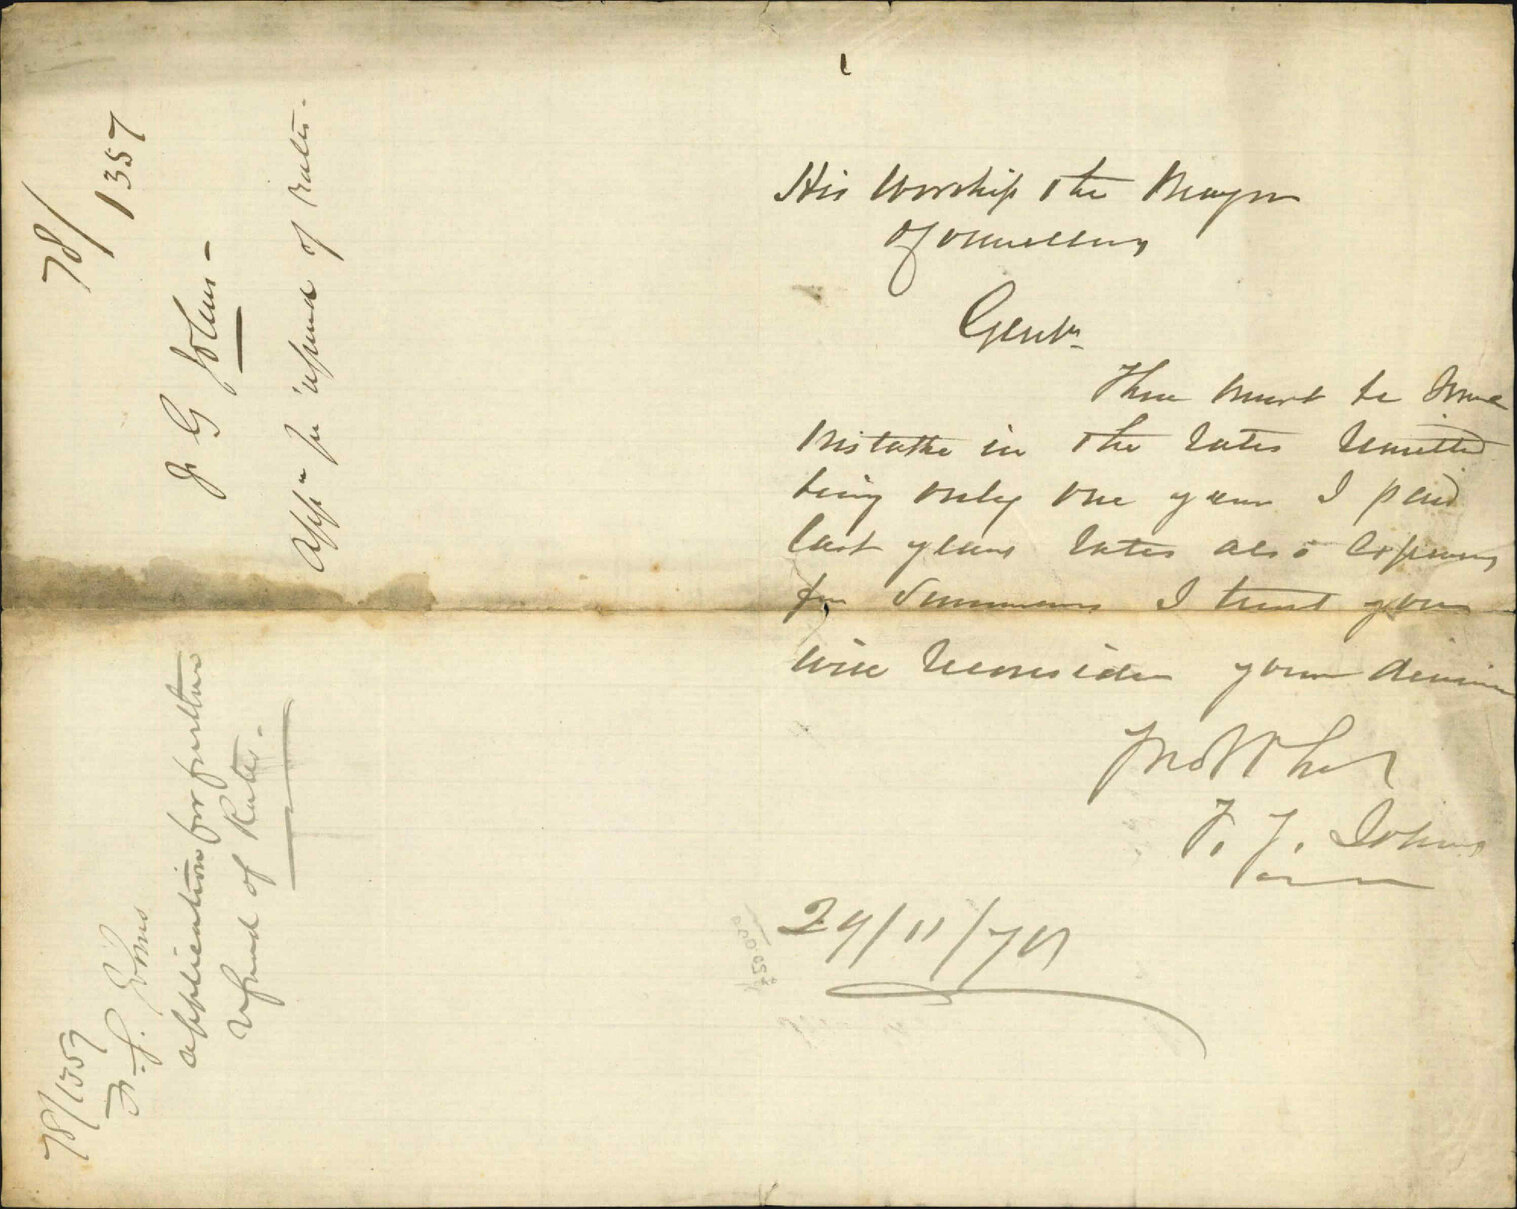 His Worship the Mayor
Gentn
There must be some
mistake in the rates remitted
being only one year I paid
last years rates also expenses
for Summons I trust you
will reconsider your decision
F. J. Johns
29/11/78
78/1357
J G Johns -
Appn for refund of Rates -
78/1357
F. J. Johns
application for further
refund of Rates -